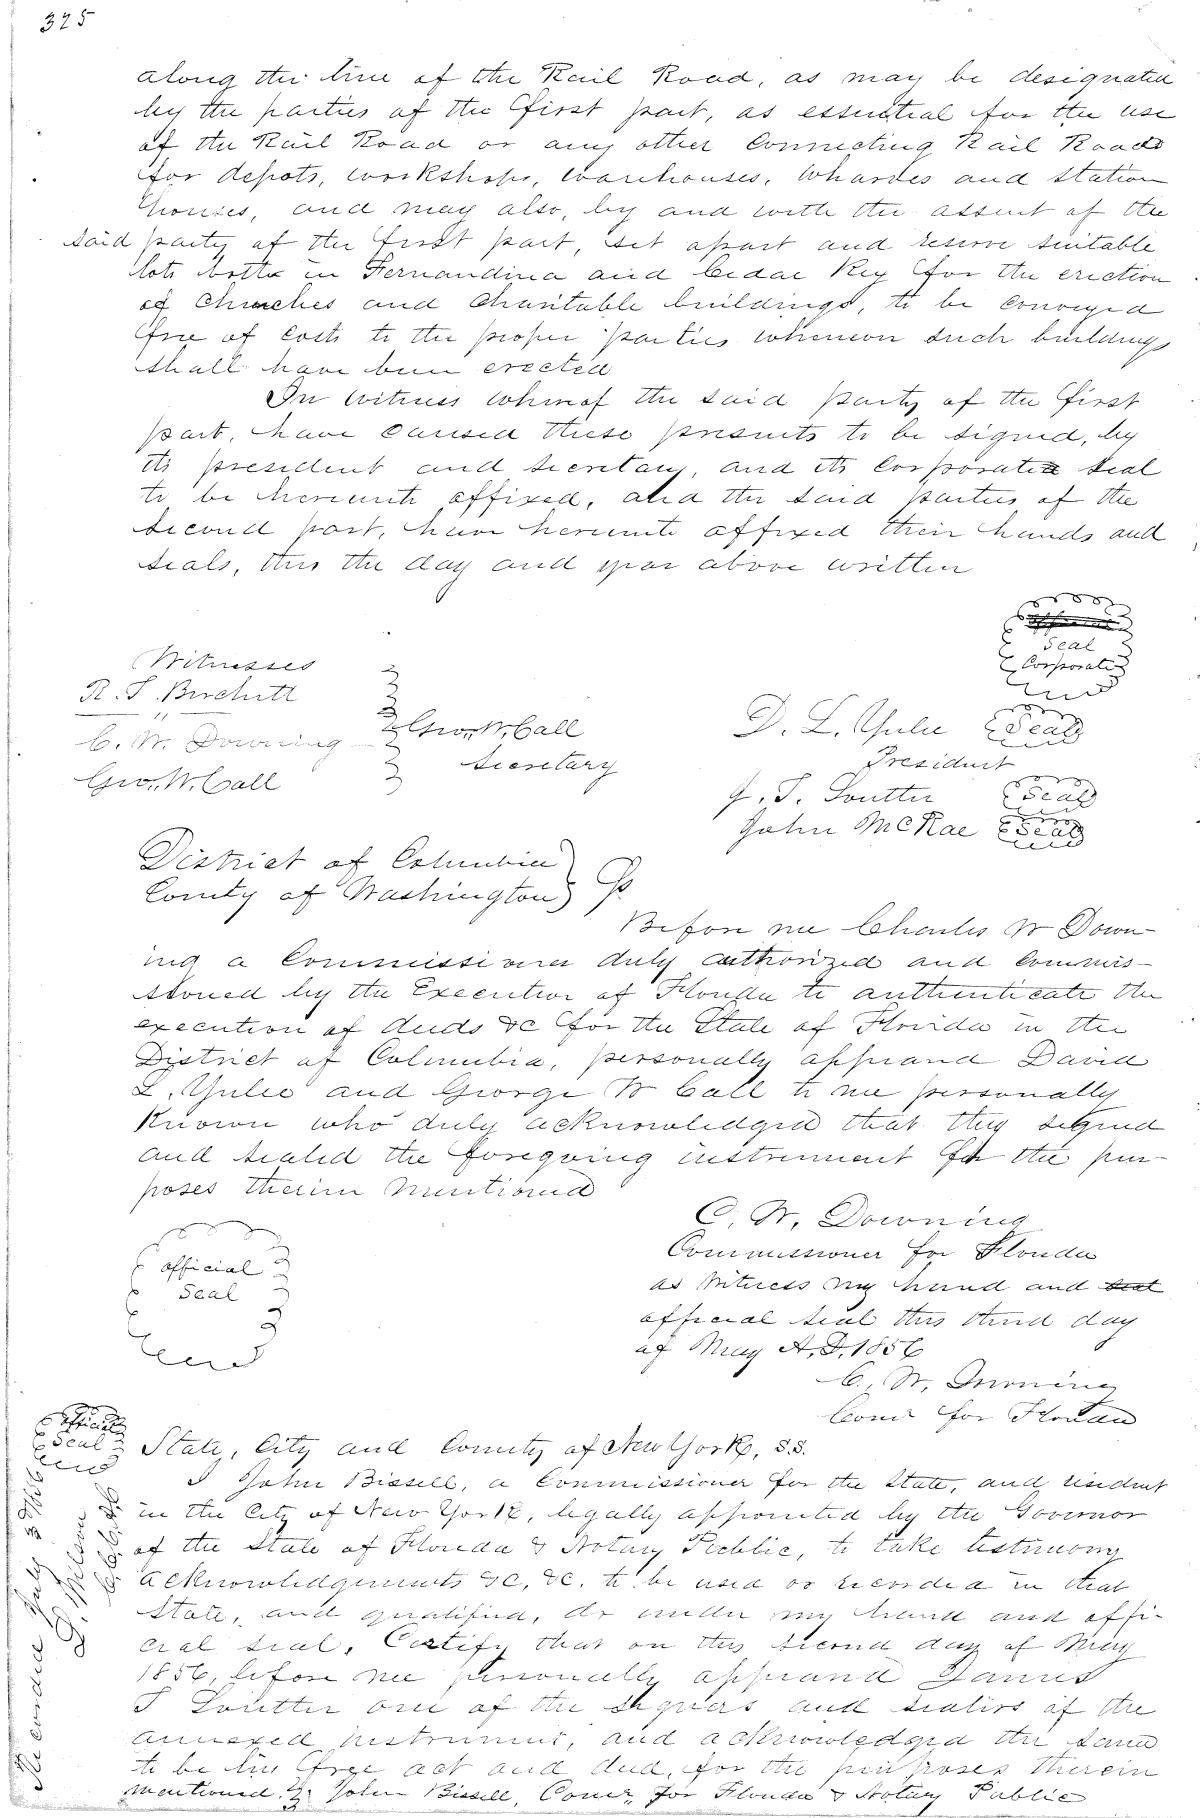 325
along the line of the Rail Road, as may be designated
by the parties of the first part, as essential for the use
of the Rail Road or any other Connecting Rail Roads
for depots, workshops, warehouses, wharves and station
houses, and may also, by and with the assent of the
said party of the first part, set apart and reserve suitable
lots both in Fernandina and Cedar Key for the erection
of Churches and Charitable buildings, to be conveyed
free of costs to the proper parties whenever such buildings
shall have been erected
In witness whereof the said party of the first
part, have caused these presents to be signed, by
its president and secretary, and its corporate seal
to be hereunto affixed, and the said parties of the
second part, have hereunto affixed their hands and
seals, this the day and year above written
Seal
Corporate
Witnesses
R. S. Burchitt
"
C. W. Downing
Geo. W. Call
Geo. W. Call
Secretary
D. L. Yulee Seal
President
J. T. Soutter Seal
John McRae Seal
District of Columbia
County of Washington
Before me Charles W Down-
ing a Commissioner duly authorized and commis-
sioned by the Executive of Florida to authenticate the
execution of deeds &c for the State of Florida in the
District of Columbia, personally appeared David
L. Yulee and George W Call to me personally
Known who duly acknowledged that they signed
and sealed the foregoing instrument for the pur-
poses therein mentioned
C. W. Downing
Commissioner for Florida
as witness my hand and seal
official seal this third day
of May A.D. 1856
C. W. Downing
Comr for Florida
official
Seal
official
Seal
State, City and County of New York, S.S.
I John Bissell, a Commissioner for the State, and resident
in the City of New York, legally appointed by the Governor
of the State of Florida & Notary Public, to take testimony
acknowledgements &c, &c. to be used or recorded in that
State, and qualified, do under my hand and offi-
cial seal, Certify that on this second day of May
1856, before me personally appeared James
T Soutter one of the signers and sealers of the
annexed instrument, and acknowledged the same
to be his free act and deed, for the purposes therein
mentioned. John Bissell, Comr for Florida & Notary Public
Recorded July 3d 1856
D. Wilson
C.C.C.